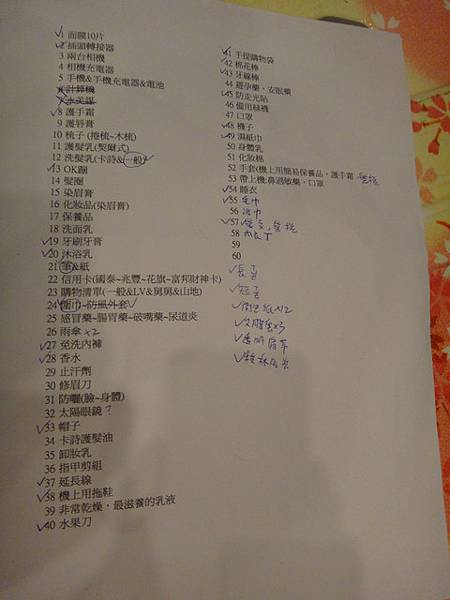 1 面膜10片
2 插頭轉接器
3 兩台相機
4 相機充電器
5 手機&手機充電器&電池
6 計算機
8 護手霜
9 護唇膏
10 梳子 (捲梳~木梳)
11 護髮乳(契爾式)
12 洗髮乳(卡詩&一般)
13 OK蹦
14 髮圈
15 染眉膏
16 化妝品(染眉膏)
17 保養品
18 洗面乳
19 牙刷牙膏
20 沐浴乳
21 筆&紙
22 信用卡(國泰~兆豐~花旗~富邦財神卡)
23 購物清單(一般&LV&舅舅&山地)
24 圍巾~防風外套
25 感冒藥~腸胃藥~破嘴藥~尿道炎
26 雨傘 x2
27 免洗內褲
28 香水
29 止汗劑
30 修眉刀
31 防曬(臉~身體)
32 太陽眼鏡 ?
33 帽子
34 卡詩護髮油
35 卸妝乳
36 指甲剪組
37 延長線
38 機上用拖鞋
39 非常乾燥，最滋養的乳液
40 水果刀
41 手提購物袋
42 棉花棒
43 牙線棒
44 避孕藥、安眠藥
45 防走光貼
46 備用絲襪
47 口罩
48 襪子
49 濕紙巾
50 身體乳
51 化妝棉
52 手套(機上用簡易保養品，護手霜
53 帶上機:鼻過敏藥、口罩
54 睡衣
55 毛巾
56 浴巾
57
58 內衣丁
59
60